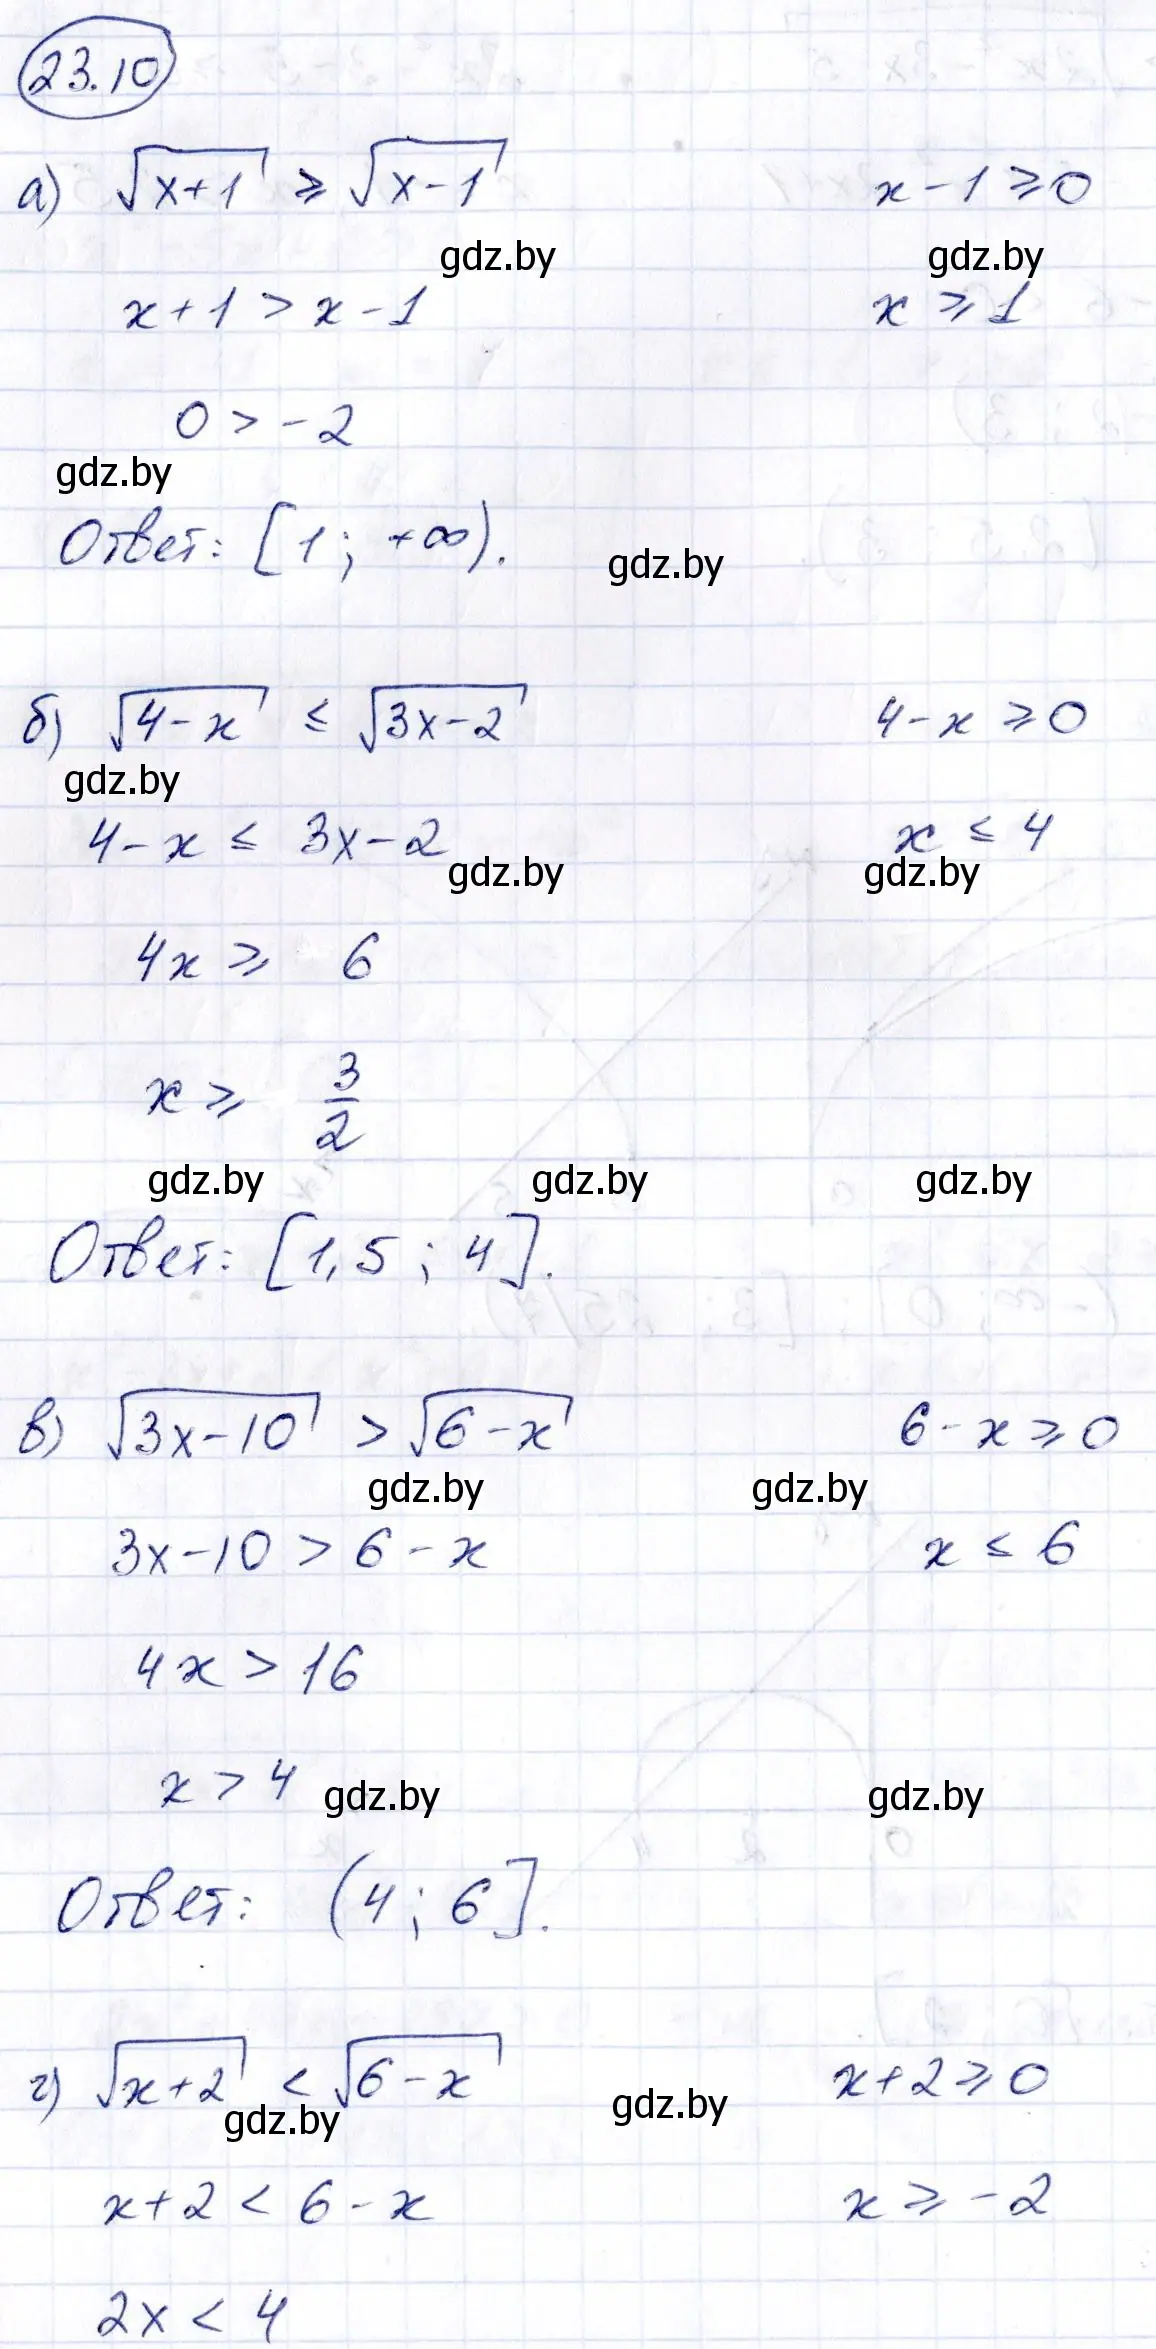 23.10
а) √(x+1) ≥ √(x-1)    x-1≥0
gdz.by    gdz.by
x+1>x-1    x≥1
0>-2
gdz.by
Ответ: [1; +∞).    gdz.by
б) √(4-x) ≤ √(3x-2)    4-x≥0
gdz.by
4-x ≤ 3x-2    x≤4
gdz.by    gdz.by
4x≥ 6
x≥ 3/2
gdz.by    gdz.by    gdz.by
Ответ: [1,5; 4].
в) √(3x-10) > √(6-x)    6-x≥0
gdz.by    gdz.by
3x-10>6-x    x≤6
4x>16
x>4    gdz.by    gdz.by
Ответ: (4; 6].
г) √(x+2) < √(6-x)    x+2≥0
gdz.by    gdz.by
x+2<6-x    x≥-2
2x<4